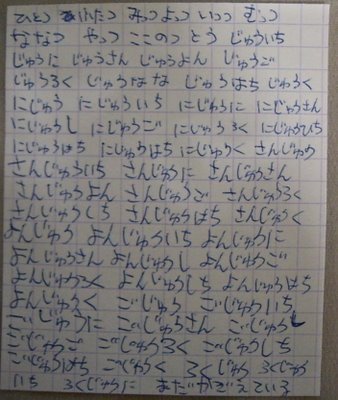 ひとつ ふたつ みっつ よっつ いつつ むっつ
ななつ やっつ ここのつ とう じゅういち
じゅうに じゅうさん じゅうよん じゅうご
じゅうろく じゅうなな じゅうはち じゅうく
にじゅう にじゅういち にじゅうに にじゅうさん
にじゅうし にじゅうご にじゅうろく にじゅうしち
にじゅうはち にじゅうはち にじゅうく さんじゅう
さんじゅういち さんじゅうに さんじゅうさん
さんじゅうよん さんじゅうご さんじゅうろく
さんじゅうしち さんじゅうはち さんじゅうく
よんじゅう よんじゅういち よんじゅうに
よんじゅうさん よんじゅうし よんじゅうご
よんじゅうろく よんじゅうしち よんじゅうはち
よんじゅうく ごじゅう ごじゅういち
ごじゅうに ごじゅうさん ごじゅうし
ごじゅうご ごじゅうろく ごじゅうしち
ごじゅうはち ごじゅうく ろくじゅう ろくじゅう
いち ろくじゅうに まだかぞえている